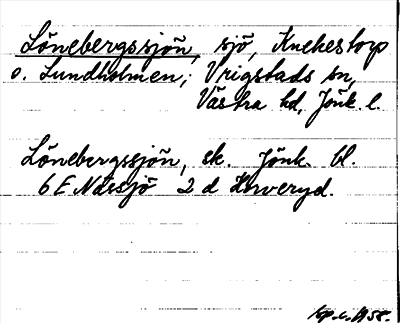 Lönebergssjön, sjö, Knekestorp
o. Lundholmen, Vrigstads sn,
Västra hd, Jönk. l.
Lönebergssjön, ek. Jönk. bl.
6 E Nässjö 2 d Korveryd.
1958.